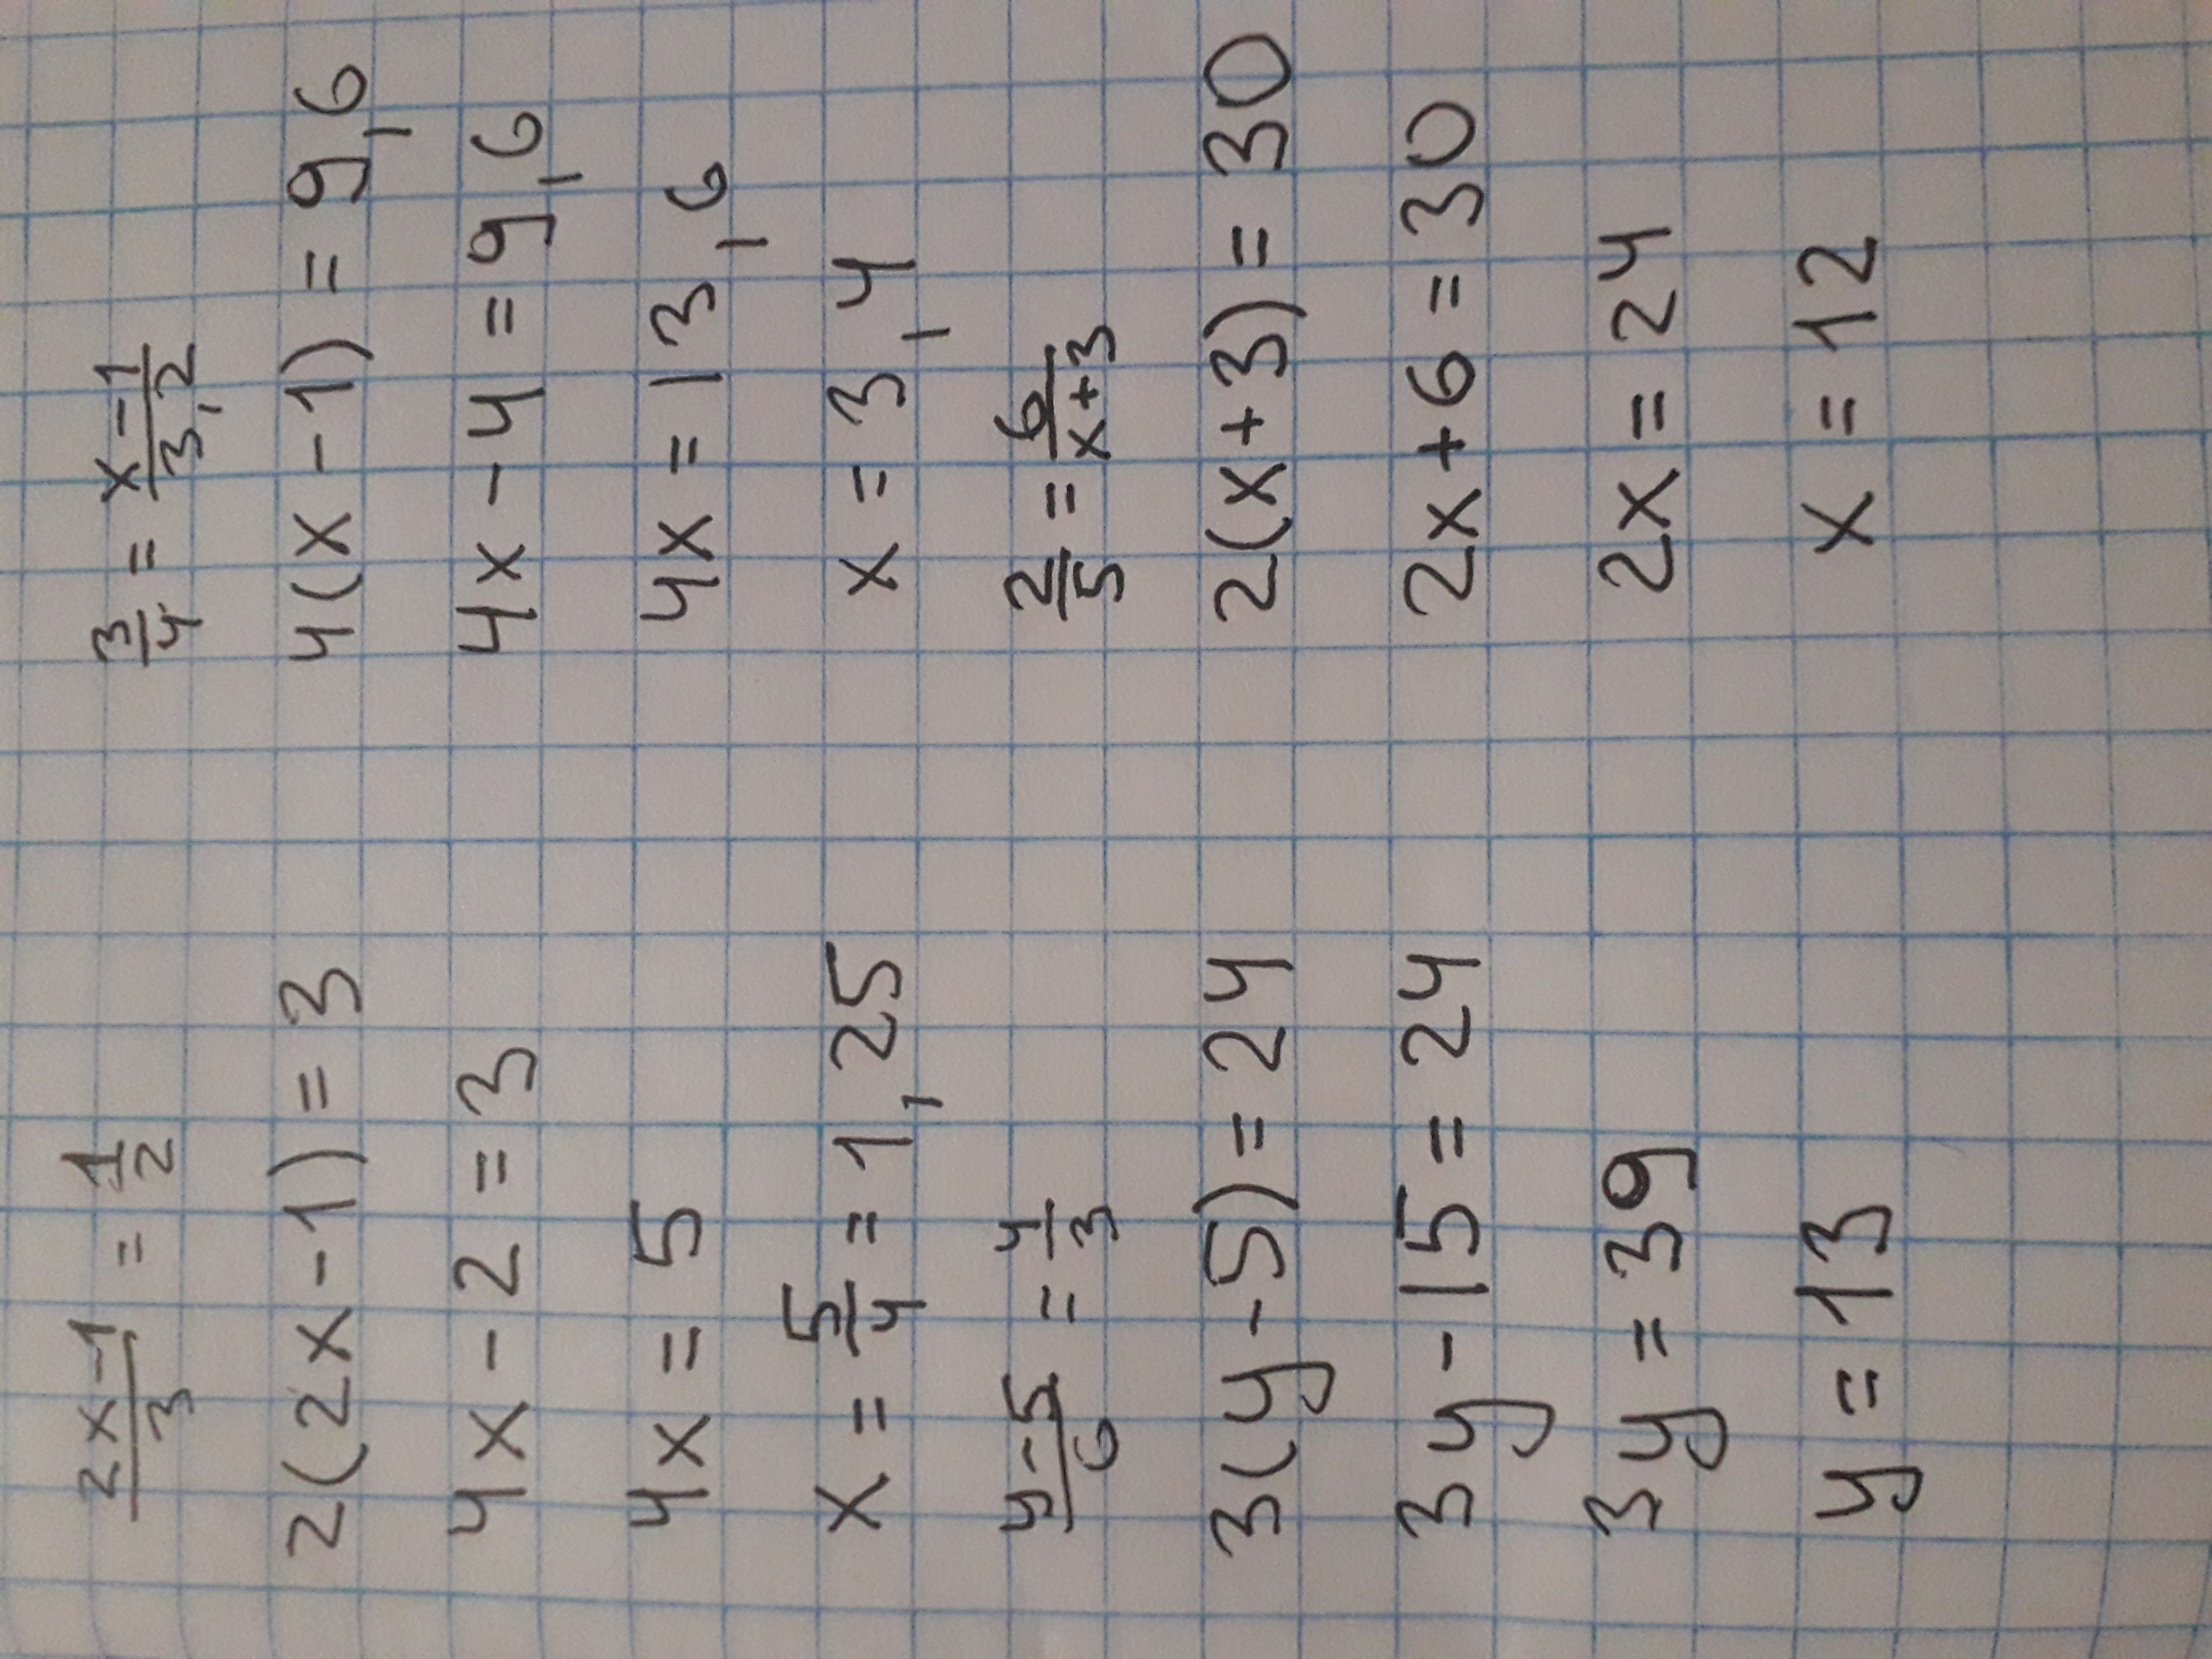 2x-1/3 = 1/2
2(2x-1) = 3
4x-2=3
4x = 5
x = 5/4 = 1,25
y-5/6 = 4/3
3(y-5)=24
3y-15=24
3y=39
y=13
3/4 = x-1/3,2
4(x-1) = 9,6
4x-4=9,6
4x=13,6
x=3,4
2/5 = 6/x+3
2(x+3)=30
2x+6=30
2x=24
x=12